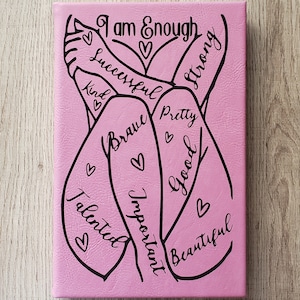 I am Enough
Strong
Successful
Kind
Pretty
Brave
Good
Talented
Important
Beautiful